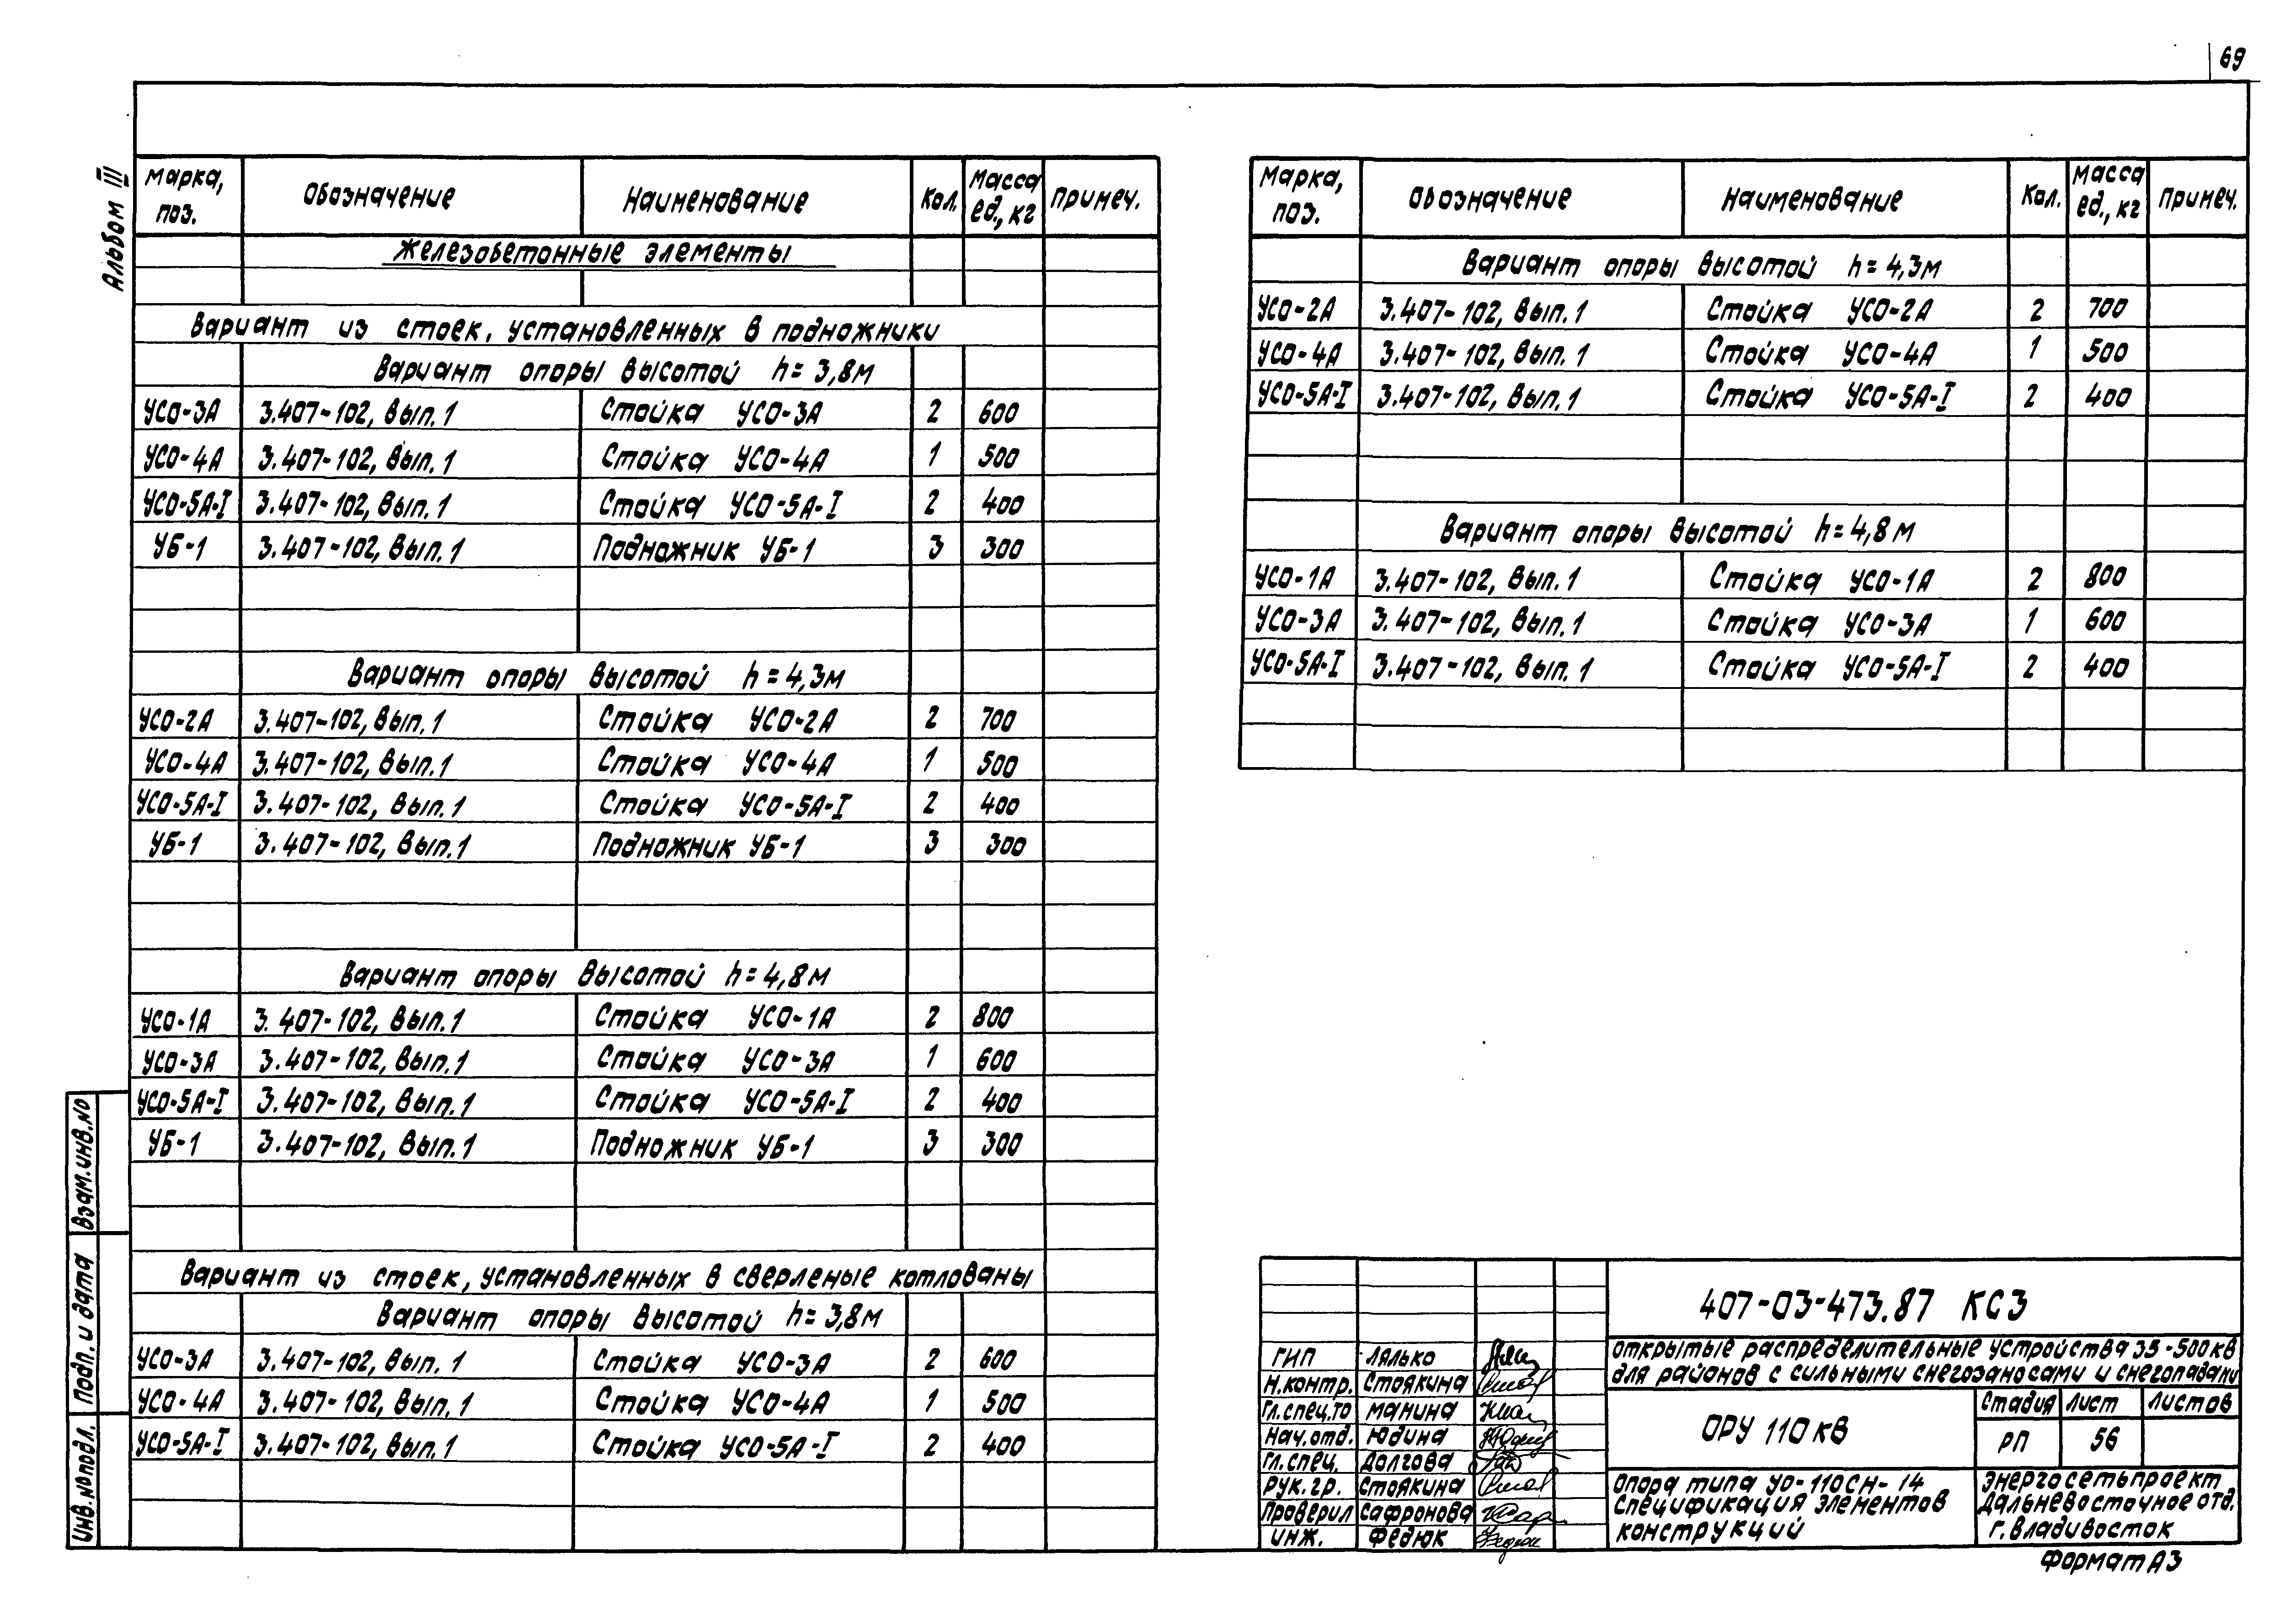 69
Альбом III
Марка, поз. Обозначение Наименование Кол. Масса ед., кг Примеч.
Железобетонные элементы
Вариант из стоек, установленных в подножники
Вариант опоры высотой h=3,8м
УСО-3А 3.407-102, вып.1 Стойка УСО-3А 2 600
УСО-4А 3.407-102, вып.1 Стойка УСО-4А 1 500
УСО-5А-I 3.407-102, вып.1 Стойка УСО-5А-I 2 400
УБ-1 3.407-102, вып.1 Подножник УБ-1 3 300
Вариант опоры высотой h=4,3м
УСО-2А 3.407-102, вып.1 Стойка УСО-2А 2 700
УСО-4А 3.407-102, вып.1 Стойка УСО-4А 1 500
УСО-5А-I 3.407-102, вып.1 Стойка УСО-5А-I 2 400
УБ-1 3.407-102, вып.1 Подножник УБ-1 3 300
Вариант опоры высотой h=4,8м
УСО-1А 3.407-102, вып.1 Стойка УСО-1А 2 800
УСО-3А 3.407-102, вып.1 Стойка УСО-3А 1 600
УСО-5А-I 3.407-102, вып.1 Стойка УСО-5А-I 2 400
УБ-1 3.407-102, вып.1 Подножник УБ-1 3 300
Вариант из стоек, установленных в сверленые котлованы
Вариант опоры высотой h=3,8м
УСО-3А 3.407-102, вып.1 Стойка УСО-3А 2 600
УСО-4А 3.407-102, вып.1 Стойка УСО-4А 1 500
УСО-5А-I 3.407-102, вып.1 Стойка УСО-5А-I 2 400
Марка, поз. Обозначение Наименование Кол. Масса ед., кг Примеч.
Вариант опоры высотой h=4,3м
УСО-2А 3.407-102, вып.1 Стойка УСО-2А 2 700
УСО-4А 3.407-102, вып.1 Стойка УСО-4А 1 500
УСО-5А-I 3.407-102, вып.1 Стойка УСО-5А-I 2 400
Вариант опоры высотой h=4,8м
УСО-1А 3.407-102, вып.1 Стойка УСО-1А 2 800
УСО-3А 3.407-102, вып.1 Стойка УСО-3А 1 600
УСО-5А-I 3.407-102, вып.1 Стойка УСО-5А-I 2 400
Взам.инв.№
Подп. и дата
Инв.№ подл.
407-03-473.87 КС3
Открытые распределительные устройства 35-500кВ
для районов с сильными снегозаносами и снегопадами
ГИП Лялько
Н.контр. Стоякина
Гл.спец.ТО Манина
Нач.отд. Юдина
Гл.спец. Долгова
Рук.гр. Стоякина
Проверил Сафронова
Инж. Федюк
ОРУ 110кВ
Стадия Лист Листов
РП 56
Опора типа УО-110СН-14
Спецификация элементов
конструкций
Энергосетьпроект
Дальневосточное отд.
г. Владивосток
Формат А3